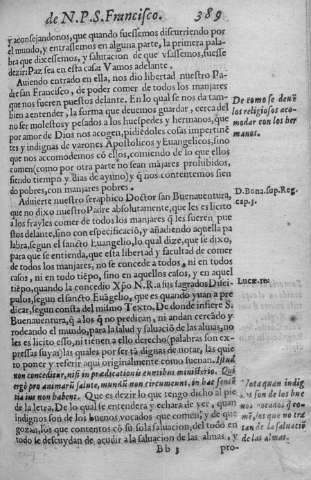 de N. P. S. Francisco. 389
y aconsejandonos, que quando fuessemos discurriendo por
el mundo, y entrassemos en alguna parte, la primera pala-
bra que dixessemos, y salutacion de que vsassemos, fuesse
dezir: Paz sea en esta casa Vamos adelante.
Auiendo entrado en ella, nos dio libertad nuestro Pa-
dre san Francisco, de poder comer de todos los manjares
que nos fueren puestos delante. En lo qual se nos da tam-
bien a entender, la forma que deuemos guardar, cerca del
no ser molestos y pesados a los huespedes y hermanos, que
por amor de Dios nos acogen, pidiēdoles cosas impertinē
tes y indignas de varones Apostolicos y Euangelicos, sino
que nos accomodemos cō ellos, comiendo de lo que ellos
comen, como por otra parte no sean mājares prohibidos,
siendo tiempo y dias de ayuno) y q̄ nos contentemos sien
do pobres, con manjares pobres.
De como se deuē
los religiosos aco
modar con los her
manos.
Aduierte nuestro seraphico Doctor san Buenauentura,
que no dixo nuestro Padre absolutamente, que les es licito
a los frayles comer de todos los manjares q̄ les fueren pue
stos delante, sino con especificaciō, y añadiendo aquella pa
labra, segun el sancto Euangelio, lo qual dize, que se dixo,
para que se entienda, que esta libertad y facultad de comer
de todos los manjares, no se concede a todos, ni en todos
casos, ni en todo tiēpo, sino en aquellos casos, y en aquel
tiēpo, quando la concedio Xp̄o N. R. a sus sagrados Disci-
pulos, segun el sancto Euāgelio, que es quando yuan a pre
dicar, segun consta del mismo Texto. De donde infiere S.
Buenauentura, q̄ a los q̄ no predican, ni andan cercādo y
rodeando el mundo, para la salud y saluaciō de las almas, no
les es licito esso, ni tienen a ello derecho (palabras son ex-
pressas suyas) las quales por ser tā dignas de notar, las quie
ro poner y referir aqui originalmente como suenan. Istud
non conceditur, nisi in prædicationis exeuntibus ministerio. Qui
ergo pro animarū salute, mundū non circumeunt, in hac senten
tia ius non habent. Que es dezir lo que tengo dicho al pie
de la letra, De lo qual se entendera y echara de ver, quan
indignos son de los buenos vocados que comen, y de que
gozan, los que contentos cō su sola saluacion, del todo en
todo se descuydan de acudir a la saluacion de las almas, y
D. Bona. sup. Reg.
cap. 3.
Lucæ. 10.
Nota quan indig
nos son de los bue
nos vocados q̄ co
mē, los que no tra
tan de la saluaciō
de las almas.
Bb 3 pro-